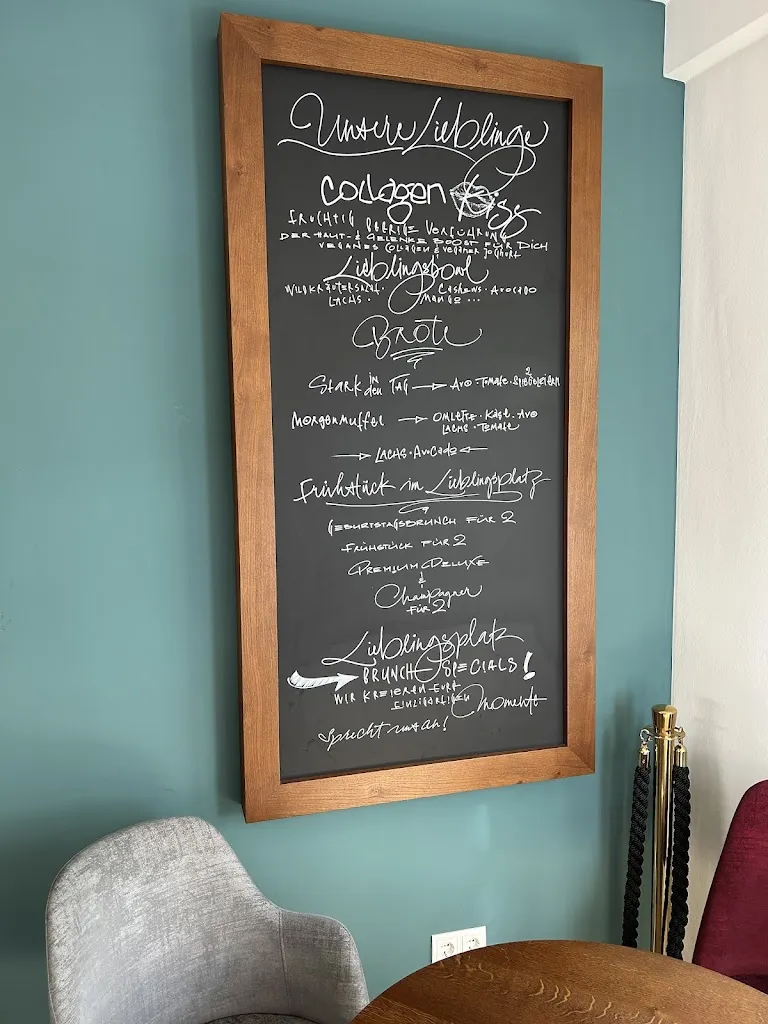 Unsere Lieblinge
Collagen Kiss
FRUCHTIG BEERIGE VERFÜHRUNG
DER HAUT- & GELENKE BOOST FÜR DICH
VEGANES COLLAGEN & VEGANER JOGHURT
Lieblingsbowl
WILDKRÄUTERSALAT · CASHEWS · AVOCADO
LACHS · MANGO ...
Brote
Stark in den TAG → AVO · TOMATE · 2 SPIEGELEIERN
Morgenmuffel → OMLETTE · KÄSE · AVO
LACHS · TOMATE
→ LACHS · AVOCADO ←
Frühstück im Lieblingsplatz
GEBURTSTAGSBRUNCH FÜR 2
FRÜHSTÜCK FÜR 2
PREMIUM DELUXE
&
Champagner
FÜR 2
Lieblingsplatz
BRUNCH SPECIALS!
WIR KREIEREN EURE
EINZIGARTIGEN Momente
Sprecht uns an!